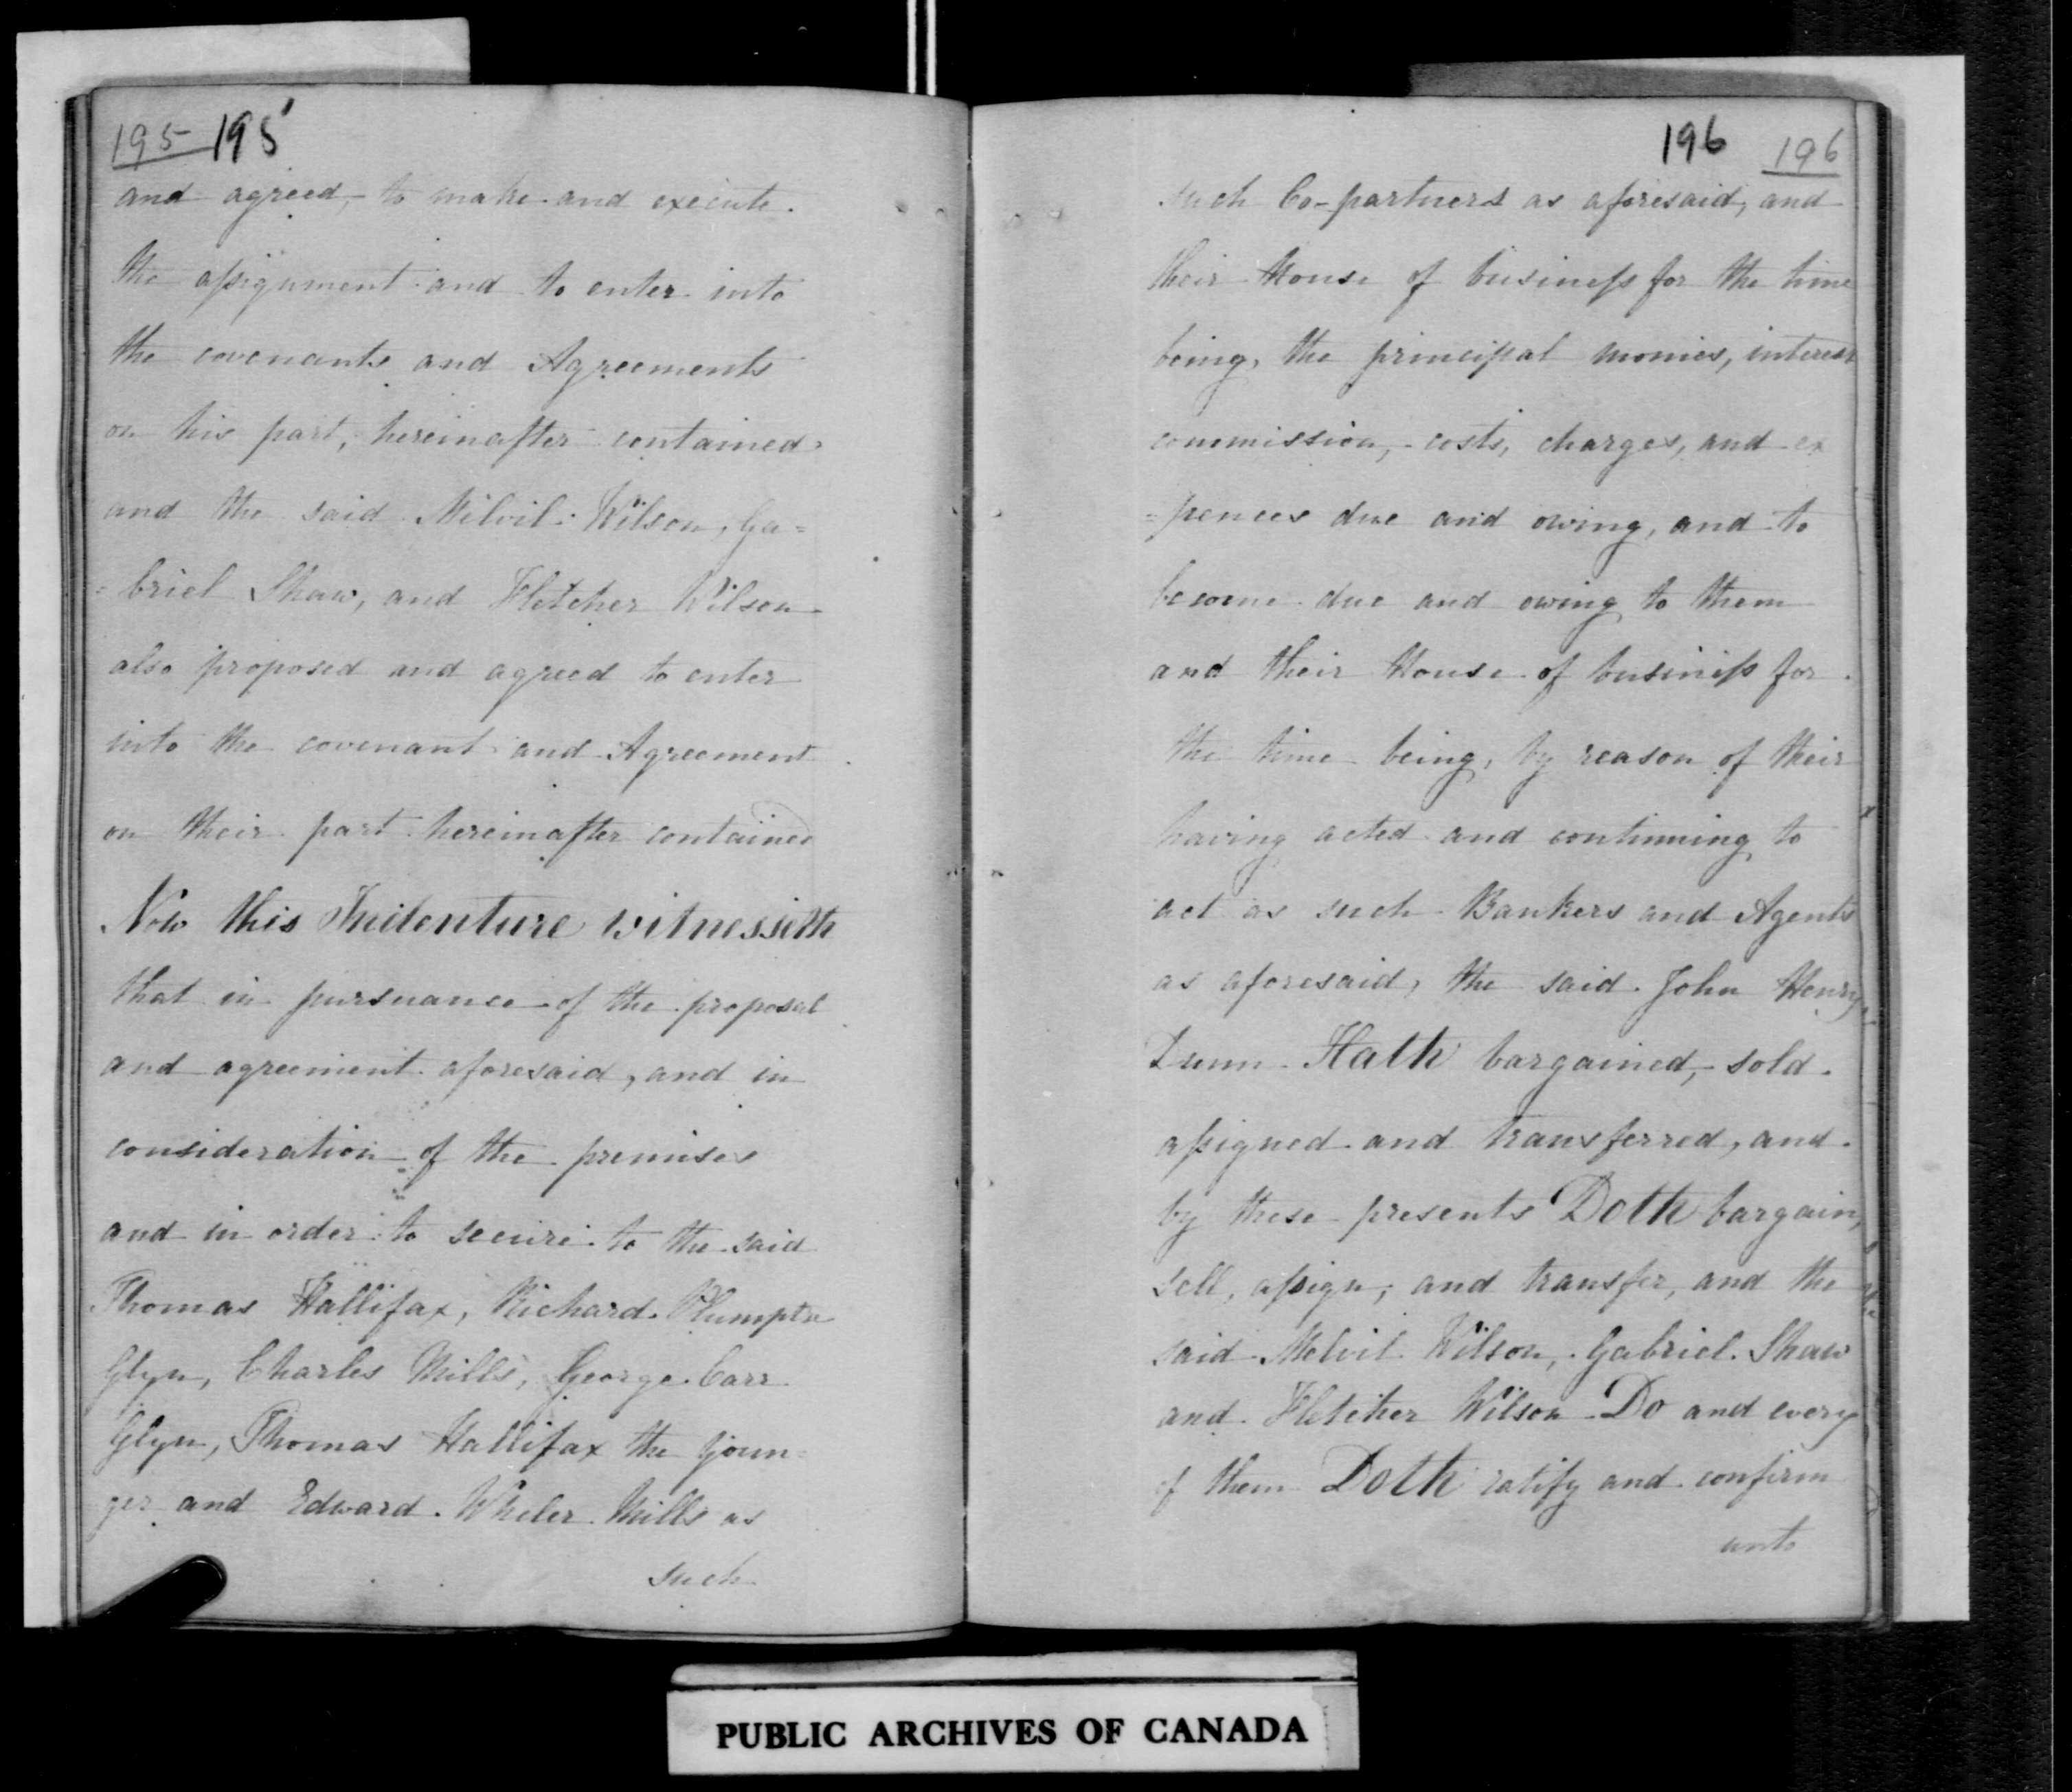 195 195
and agreed, to make and execute
the assignment and to enter into
the covenants and Agreements
on his part, hereinafter contained
and the said Melvil Wilson, Ga=
=briel Shaw, and Fletcher Wilson
also proposed and agreed to enter
into the covenant and Agreement
on their part hereinafter contained
Now this Indenture witnesseth
that in pursuance of the proposal
and agreement aforesaid, and in
consideration of the premises
and in order to secure to the said
Thomas Hallifax, Richard Plumptre
Glyn, Charles Mills, George Carr
Glyn, Thomas Hallifax the youn
ger and Edward Wheler Mills as
such
196 196
such Co-partners as aforesaid, and
their House of business for the time
being, the principal monies, interest
commission, costs, charges, and ex
=pences due and owing, and to
become due and owing to them
and their House of business for
the time being, by reason of their
having acted and continuing to
act as such Bankers and Agents
as aforesaid, the said John Henry
Dunn Hath bargained, sold
assigned and transferred, and
by these presents Doth bargain,
sell, assign, and transfer, and the
said Melvil Wilson, Gabriel Shaw
and Fletcher Wilson Do and every
of them Doth ratify and confirm
unto
PUBLIC ARCHIVES OF CANADA